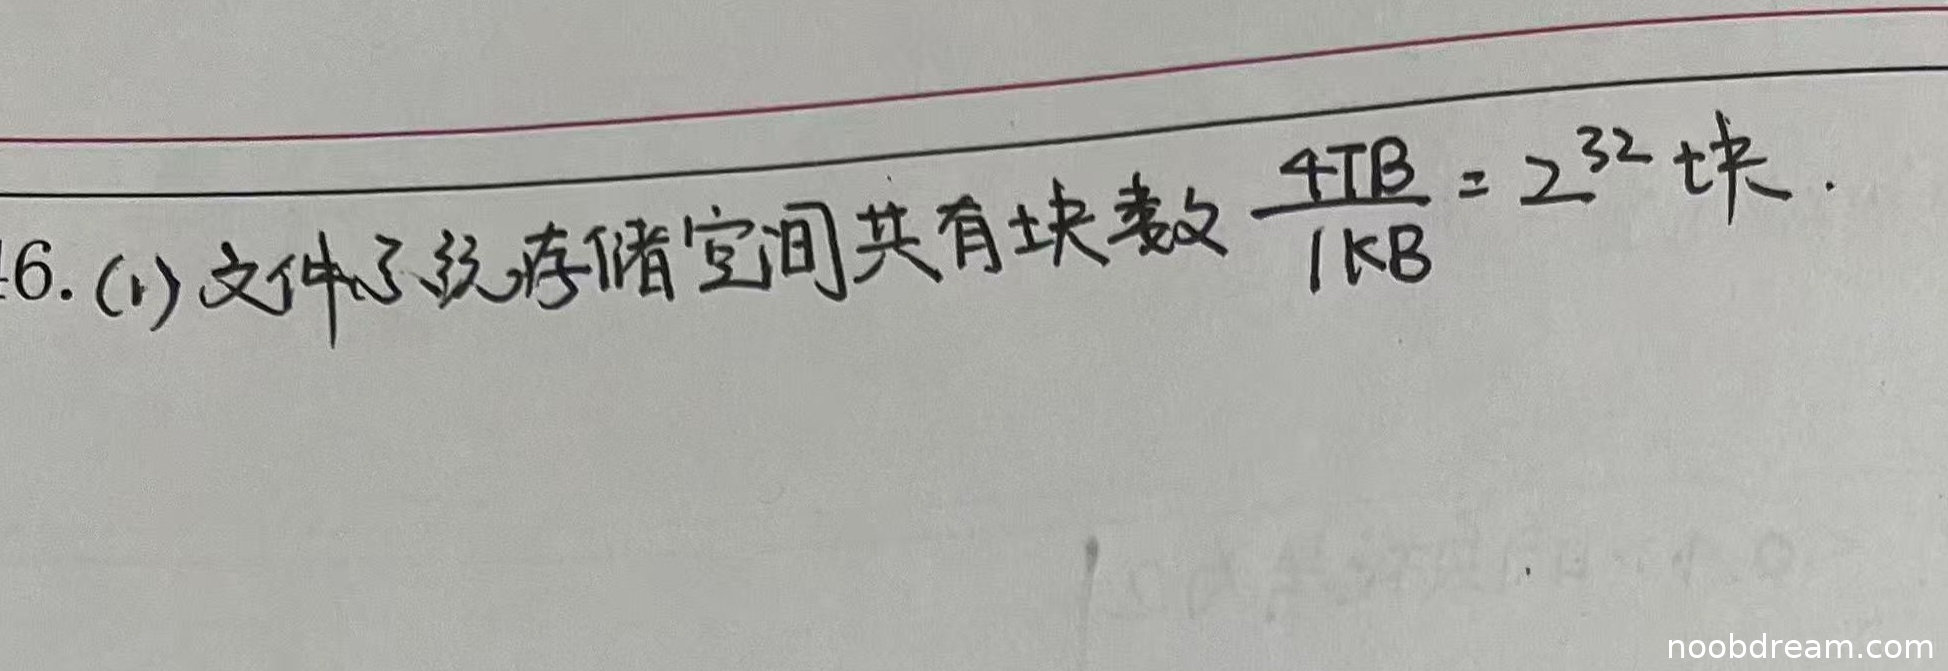 46. (1) 文件系统存储空间共有块数 4TB/1KB = 2^32 块.
noobdream.com